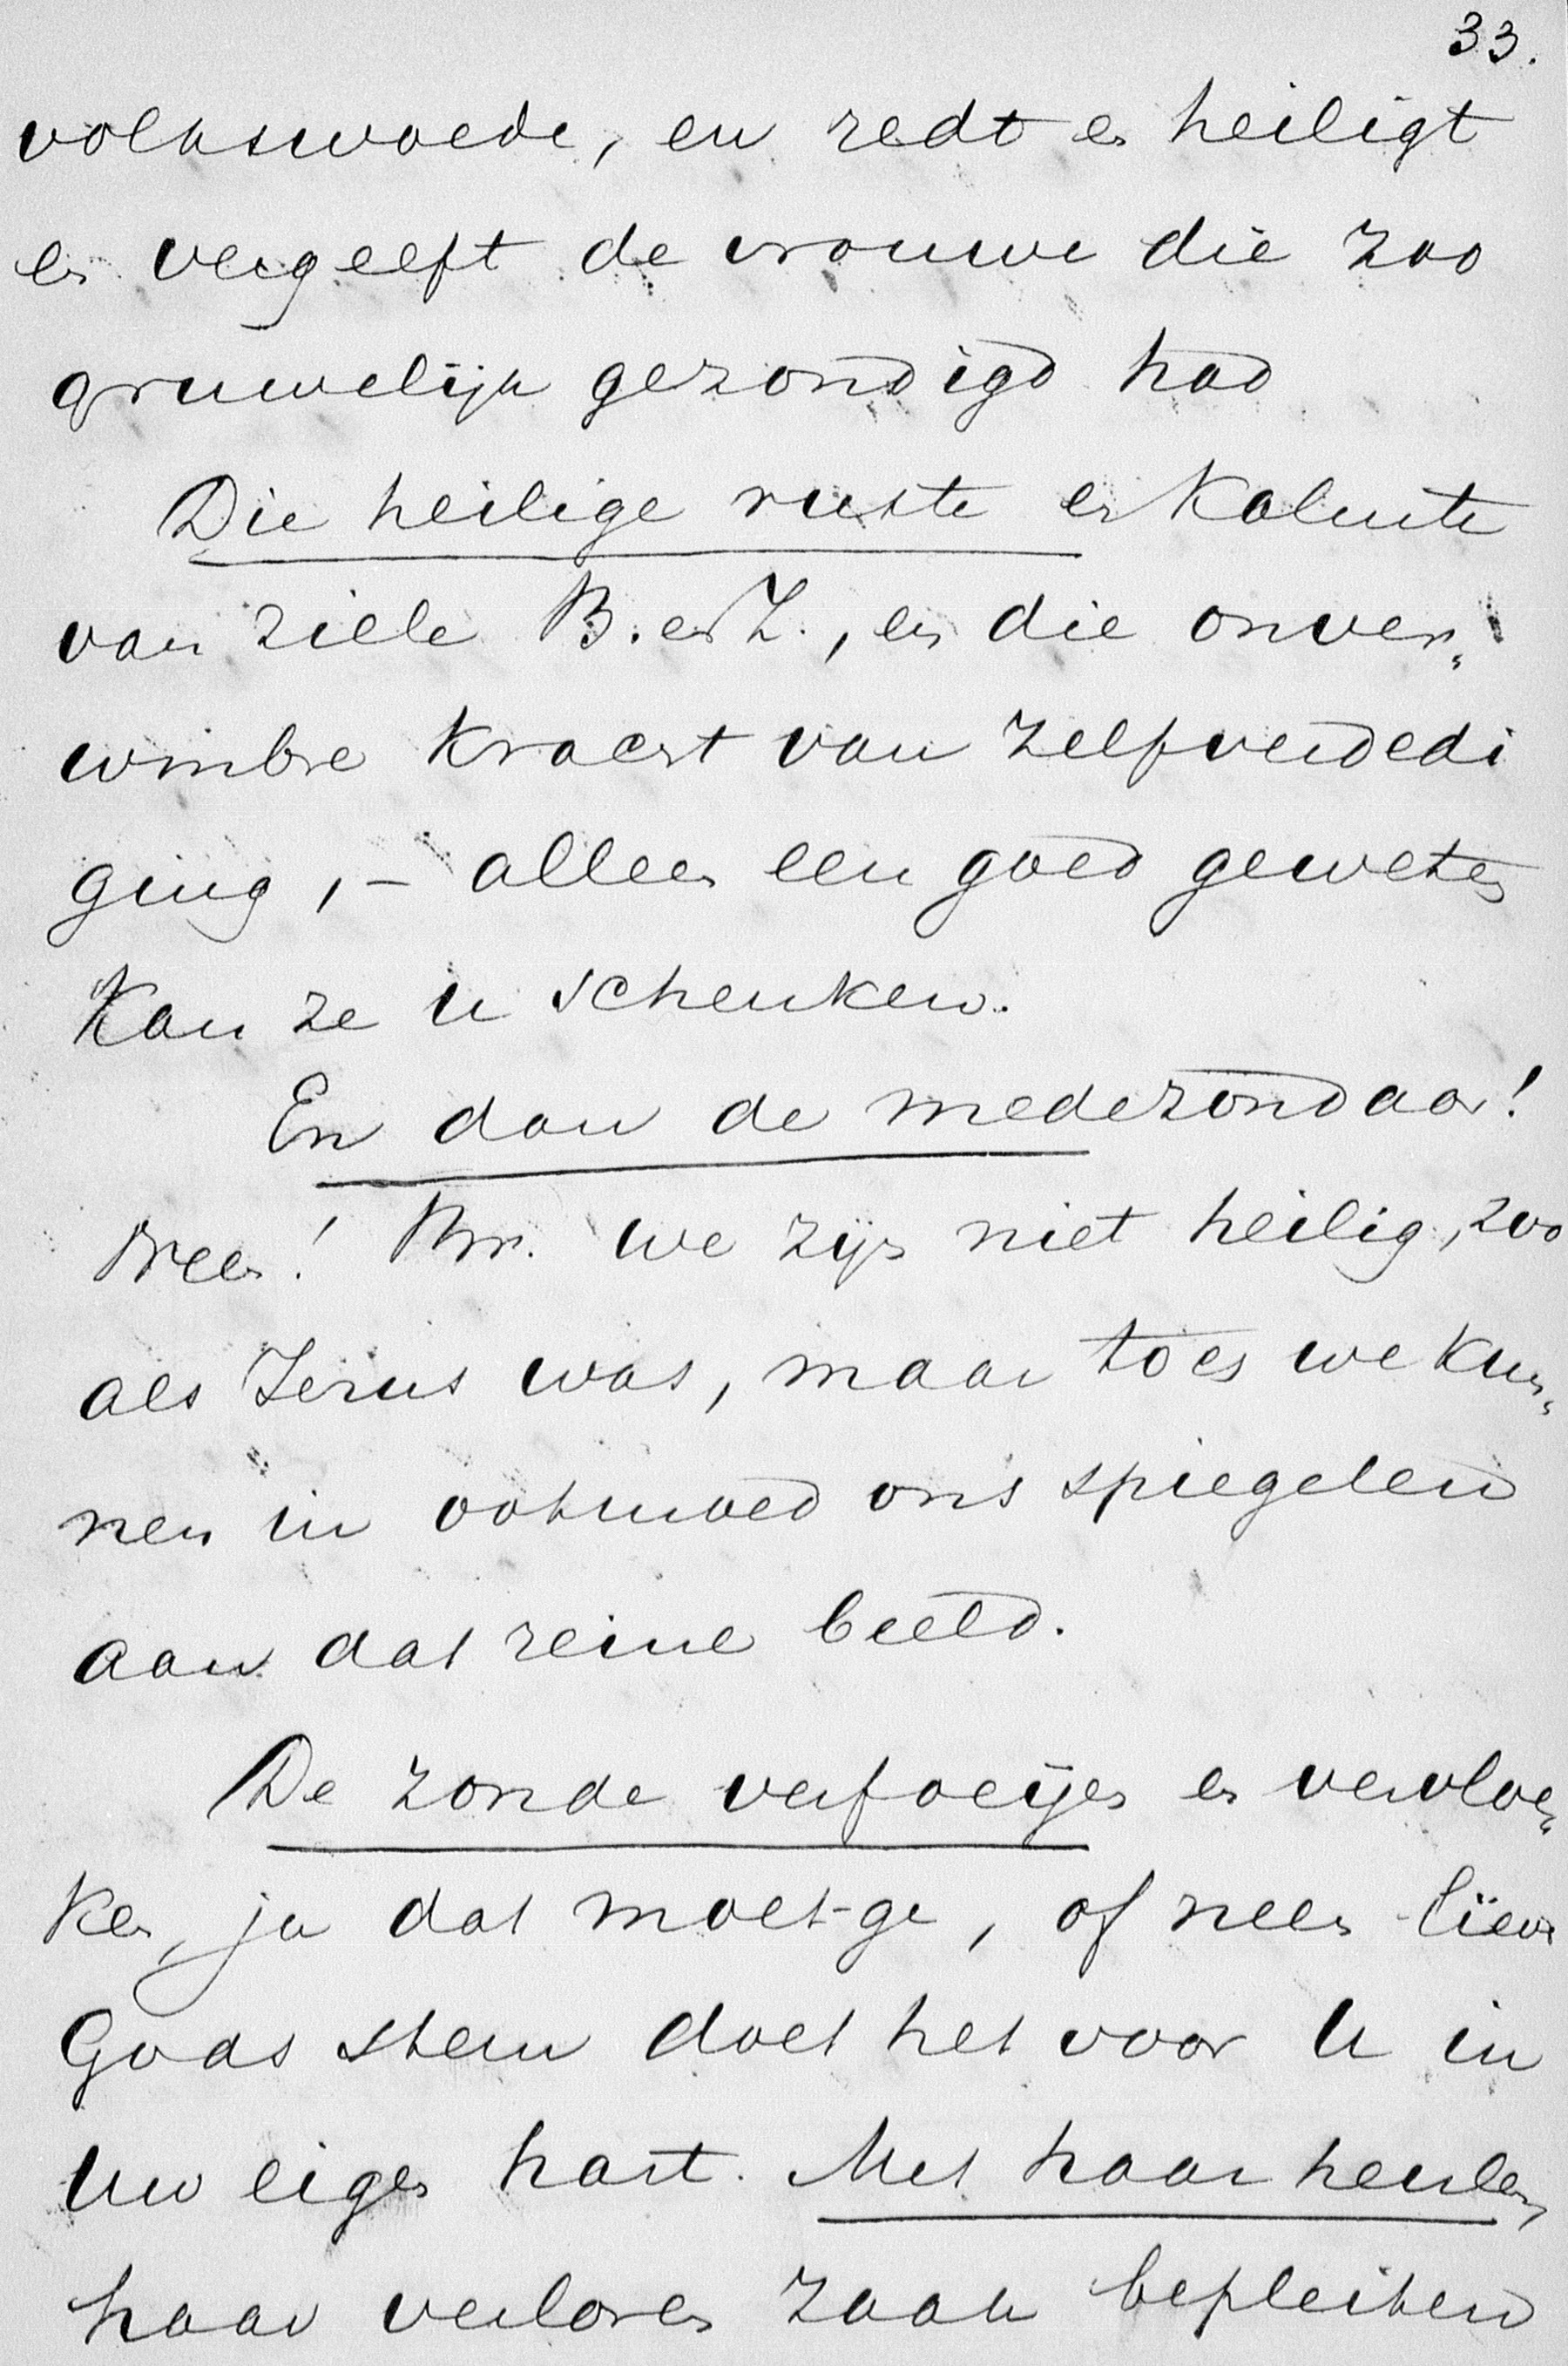 33.
volkswoede, en redt en heiligt
en vergeeft de vrouwe die zoo
gruwelijk gezondigd had
Die heilige ruste en kalmte
van ziele B. en Z., en die onver„
winbre kracht van zelfverdedi
ging, – alleen een goed geweten
kan ze u schenken.
En dan de medezondaar!
Neen! Br. we zijn niet heilig, zoo
als Jezus was, maar toch we kun„
nen in ootmoed ons spiegelen
aan dat reine beeld.
De zonde verfoeijen en vervloe„
ken, ja dat moet-ge, of neen liever
Gods stem doet het voor U in
Uw eigen hart. Met haar heulen,
haar verloren zaak bepleiten